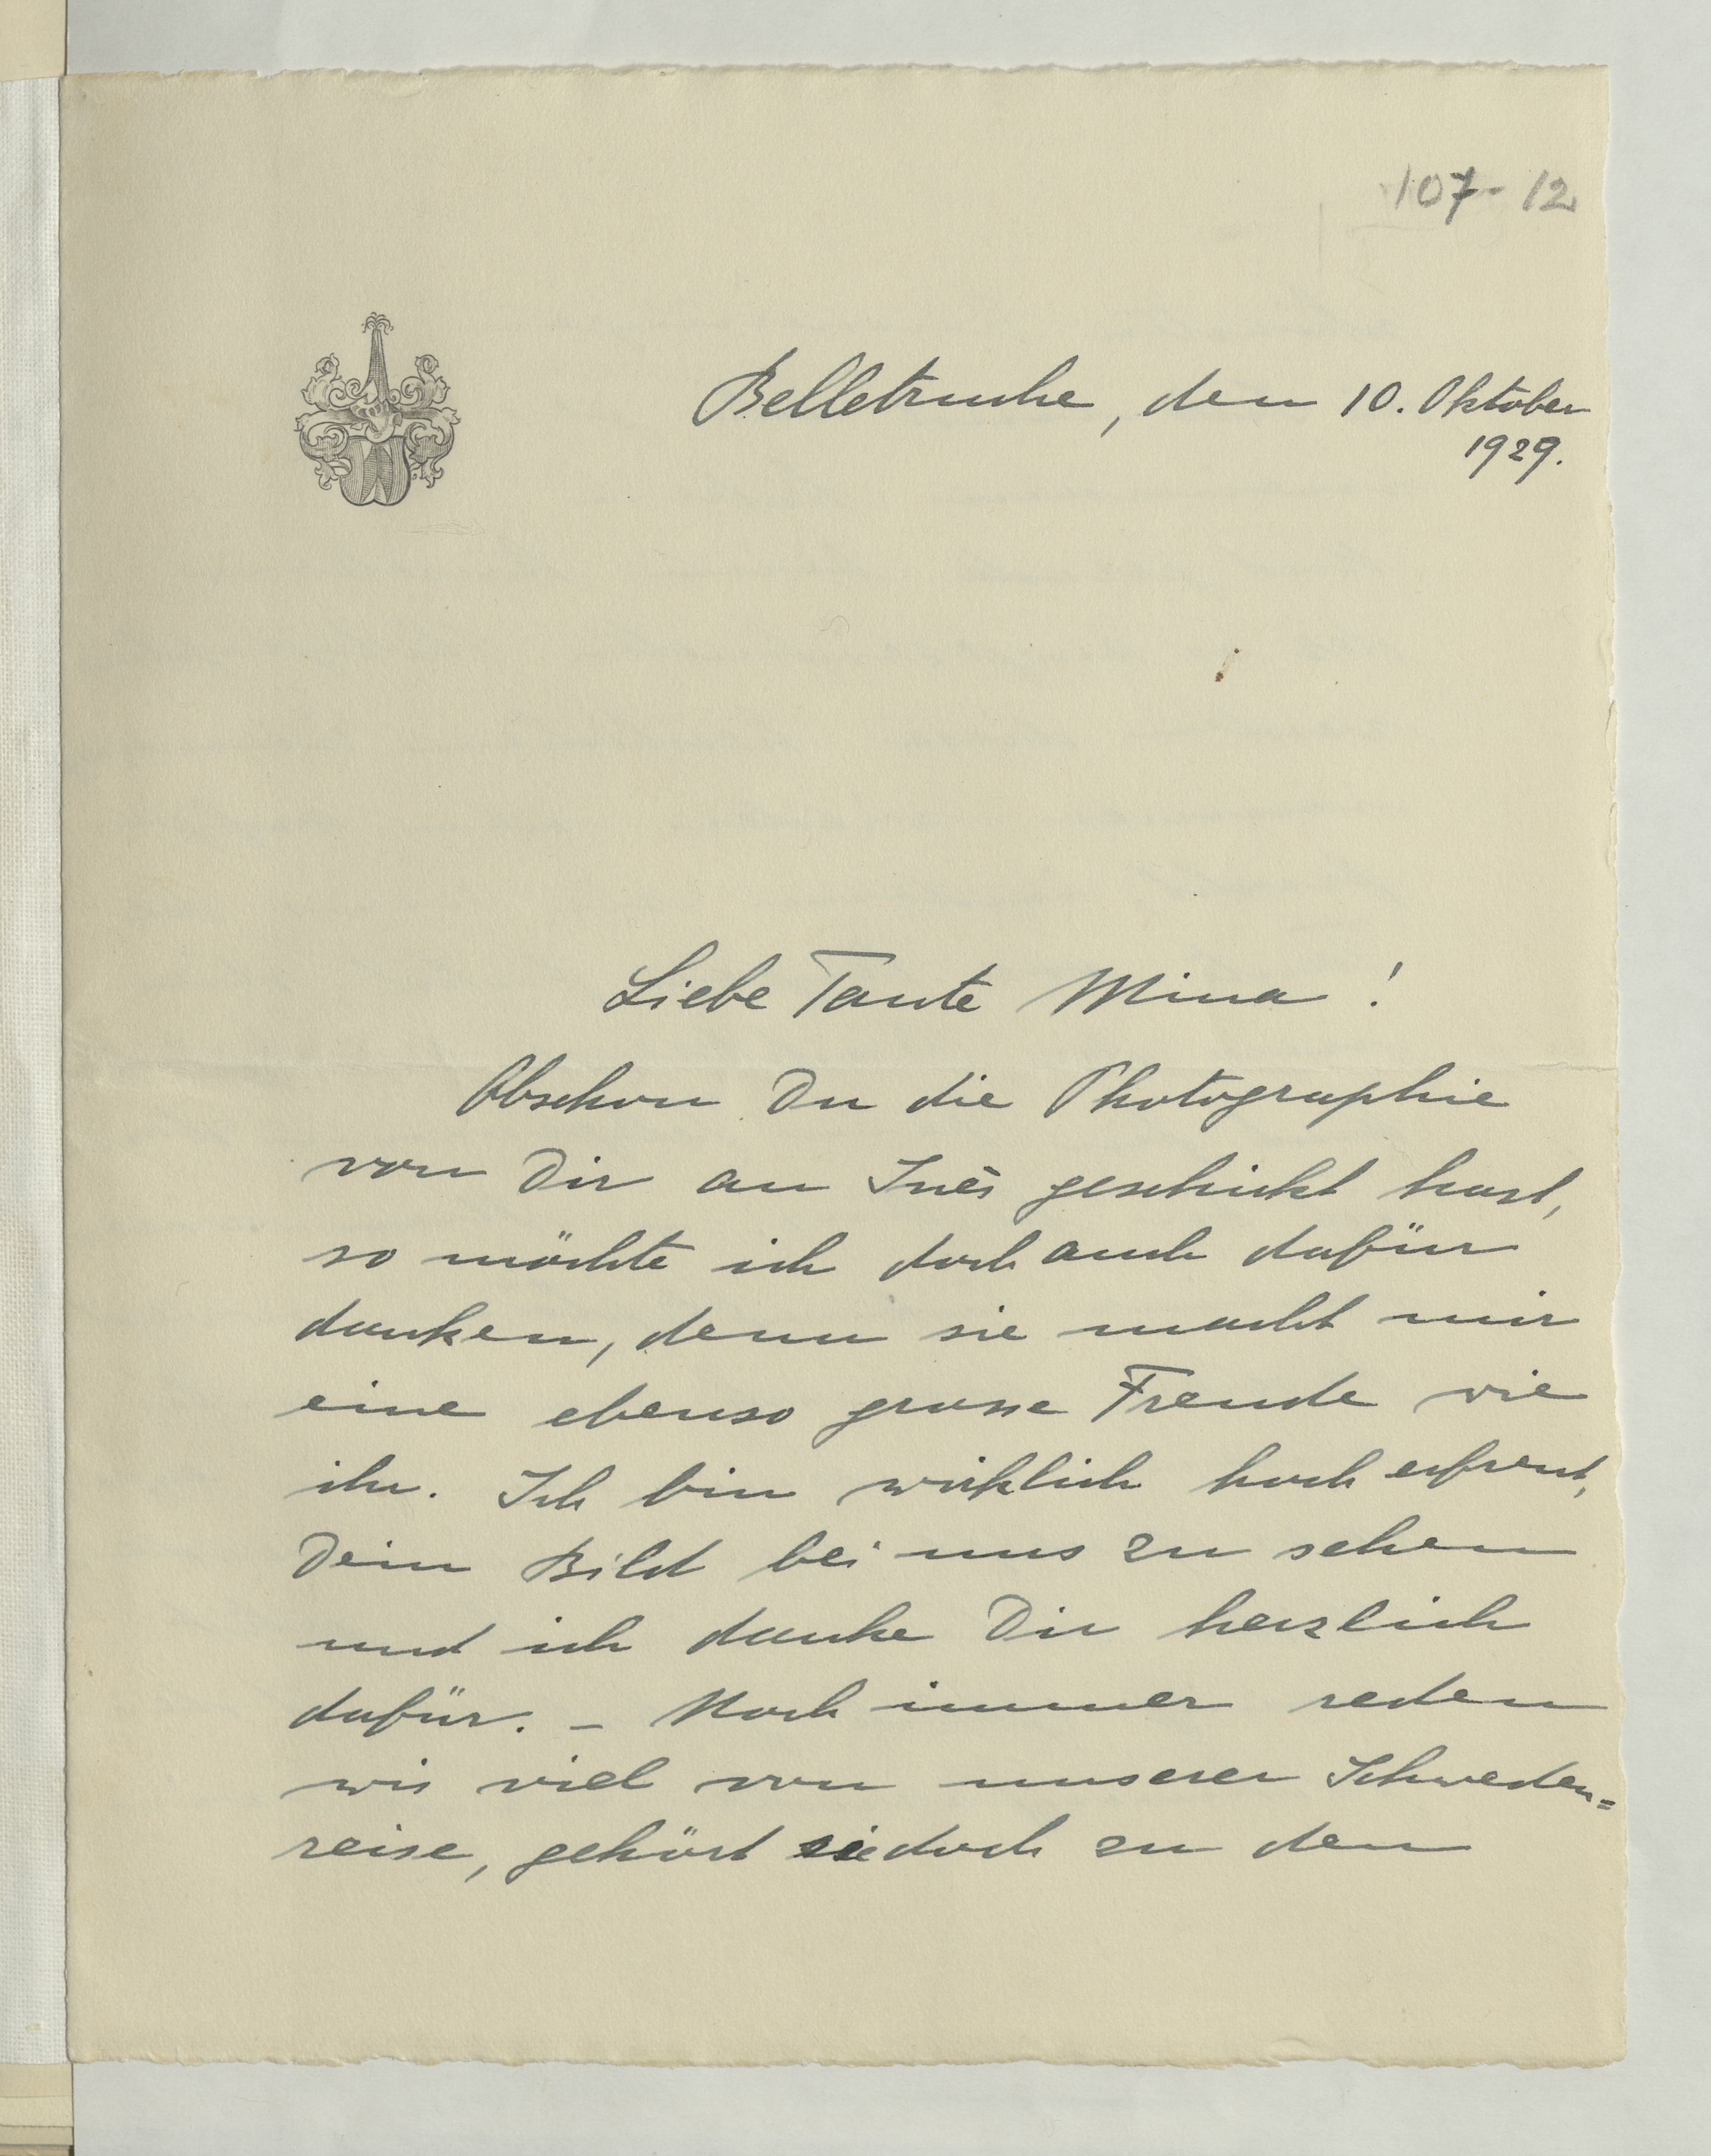 107-12
Belletruche, den 10. Oktober
1929.
Liebe Tante Mina!
Obschon Du die Photographie
von Dir an Inès geschickt hast,
so möchte ich doch auch dafür
danken, denn sie macht mir
eine ebenso grosse Freude wie
ihr. Ich bin wirklich hoch erfreut,
Dein Bild bei uns zu sehen
und ich danke Dir herzlich
dafür. – Noch immer reden
wir viel von unserer Schweden=
reise, gehört sie doch zu den